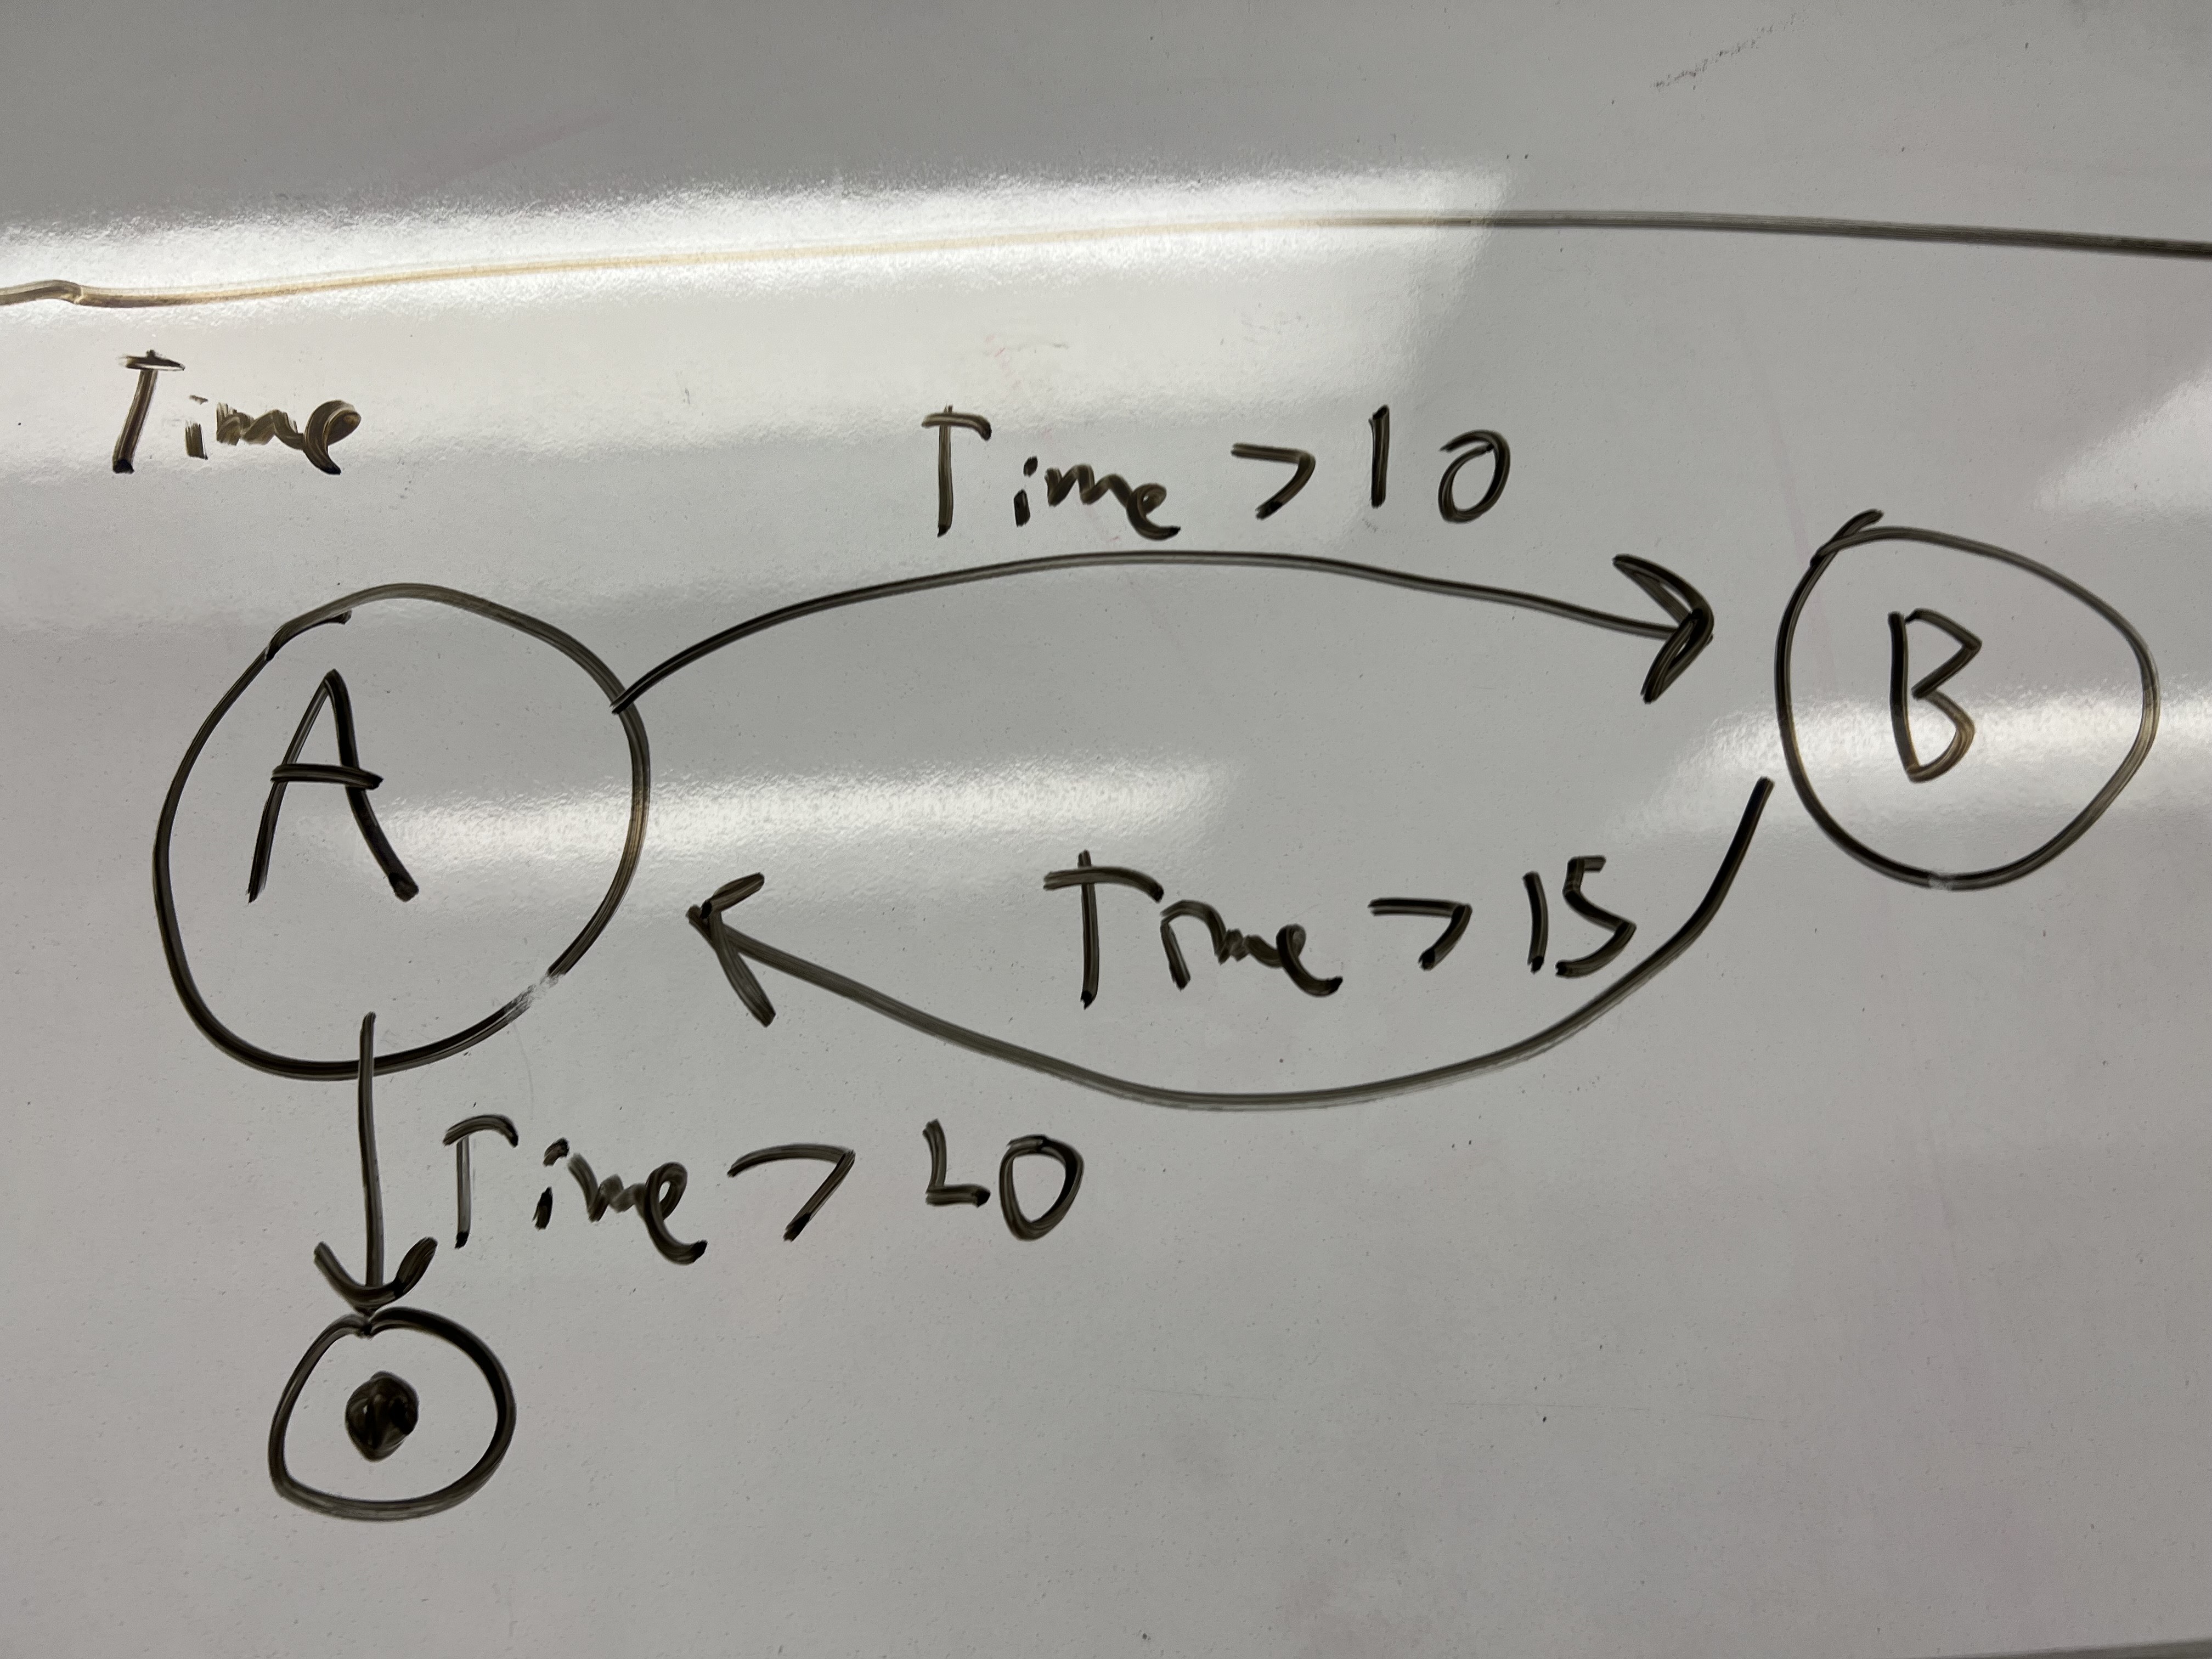 Time
Time > 10
A
B
Time > 15
Time > 40